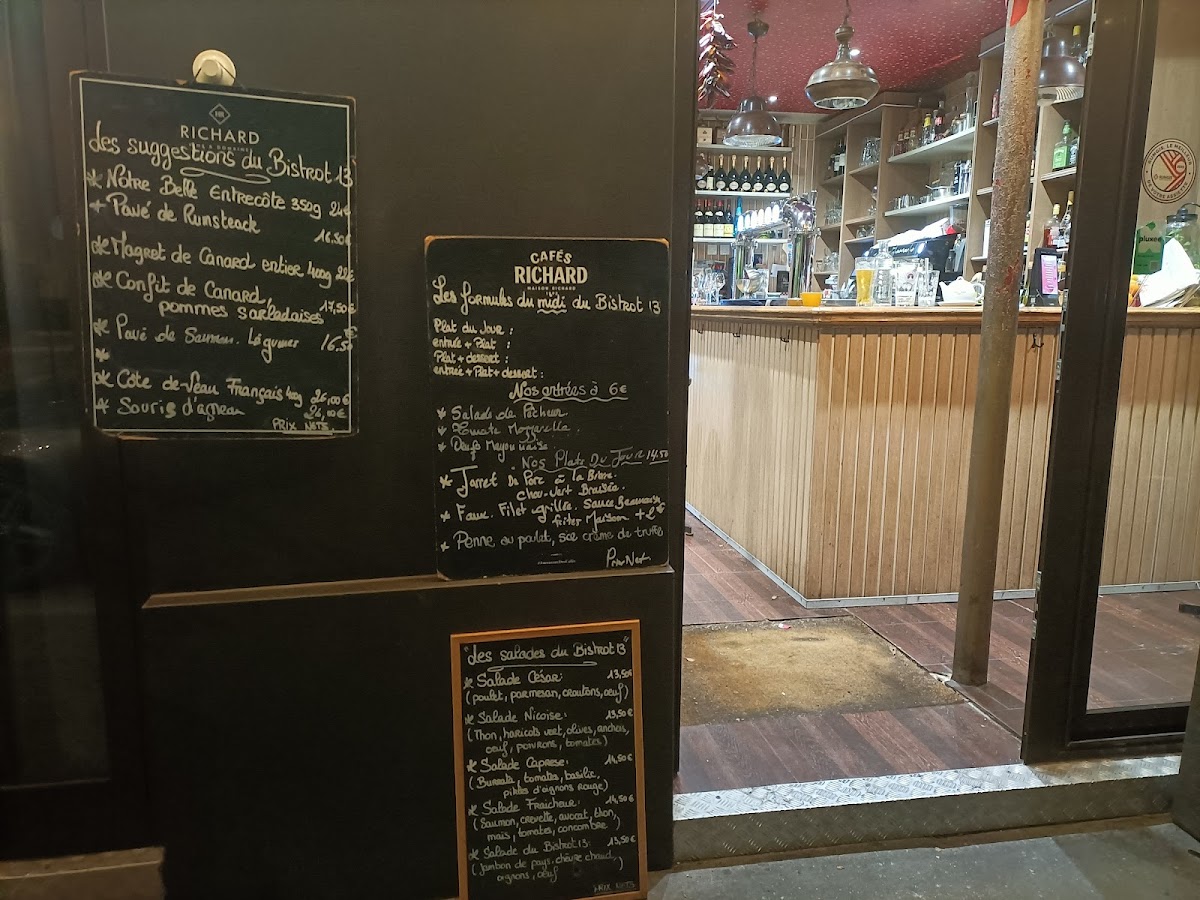 RICHARD
Les suggestions du Bistrot 13
* Notre Belle Entrecôte 350g 24€
* Pavé de Rumsteack
16.50€
* Magret de Canard entier 400g 22€
* Confit de Canard,
pommes sarladaises 17,50€
* Pavé de Saumon. Légumes 16.50€
*
* Côte de Veau Français 26,00€
* Souris d'agneau 26,00€
PRIX NETS
CAFÉS
RICHARD
MAISON RICHARD
Les formules du midi du Bistrot 13
Plat du Jour :
entrée + Plat :
Plat + dessert :
entrée + Plat + dessert :
Nos entrées à 6€
* Salade de Pêcheur
* Tomate Mozzarella.
* Oeufs Mayonnaise.
Nos Plats Du Jour 14.50
* Jarret De Porc à la Bière
chou-vert Braisée.
* Faux. Filet grillée. Sauce Bearnaise
frites Maison + 2€
* Penne au poulet, sce crème de truffe
Prix Net
"Les salades du Bistrot 13"
* Salade César: 13,50€
(poulet, parmesan, croutons, oeuf)
* Salade Nicoise: 13,50€
(Thon, haricots vert, olives, anchois,
oeuf, poivrons, tomates)
* Salade Caprese: 14,50€
(Burrata, tomates, basilic,
pikles d'oignons rouge)
* Salade Fraicheur: 14,50€
(Saumon, crevette, avocat, thon,
maïs, tomates, concombre)
* Salade du Bistrot 13: 13,50€
(jambon de pays, chèvre chaud,
oignons, oeuf)
PRIX NETS
pluxee